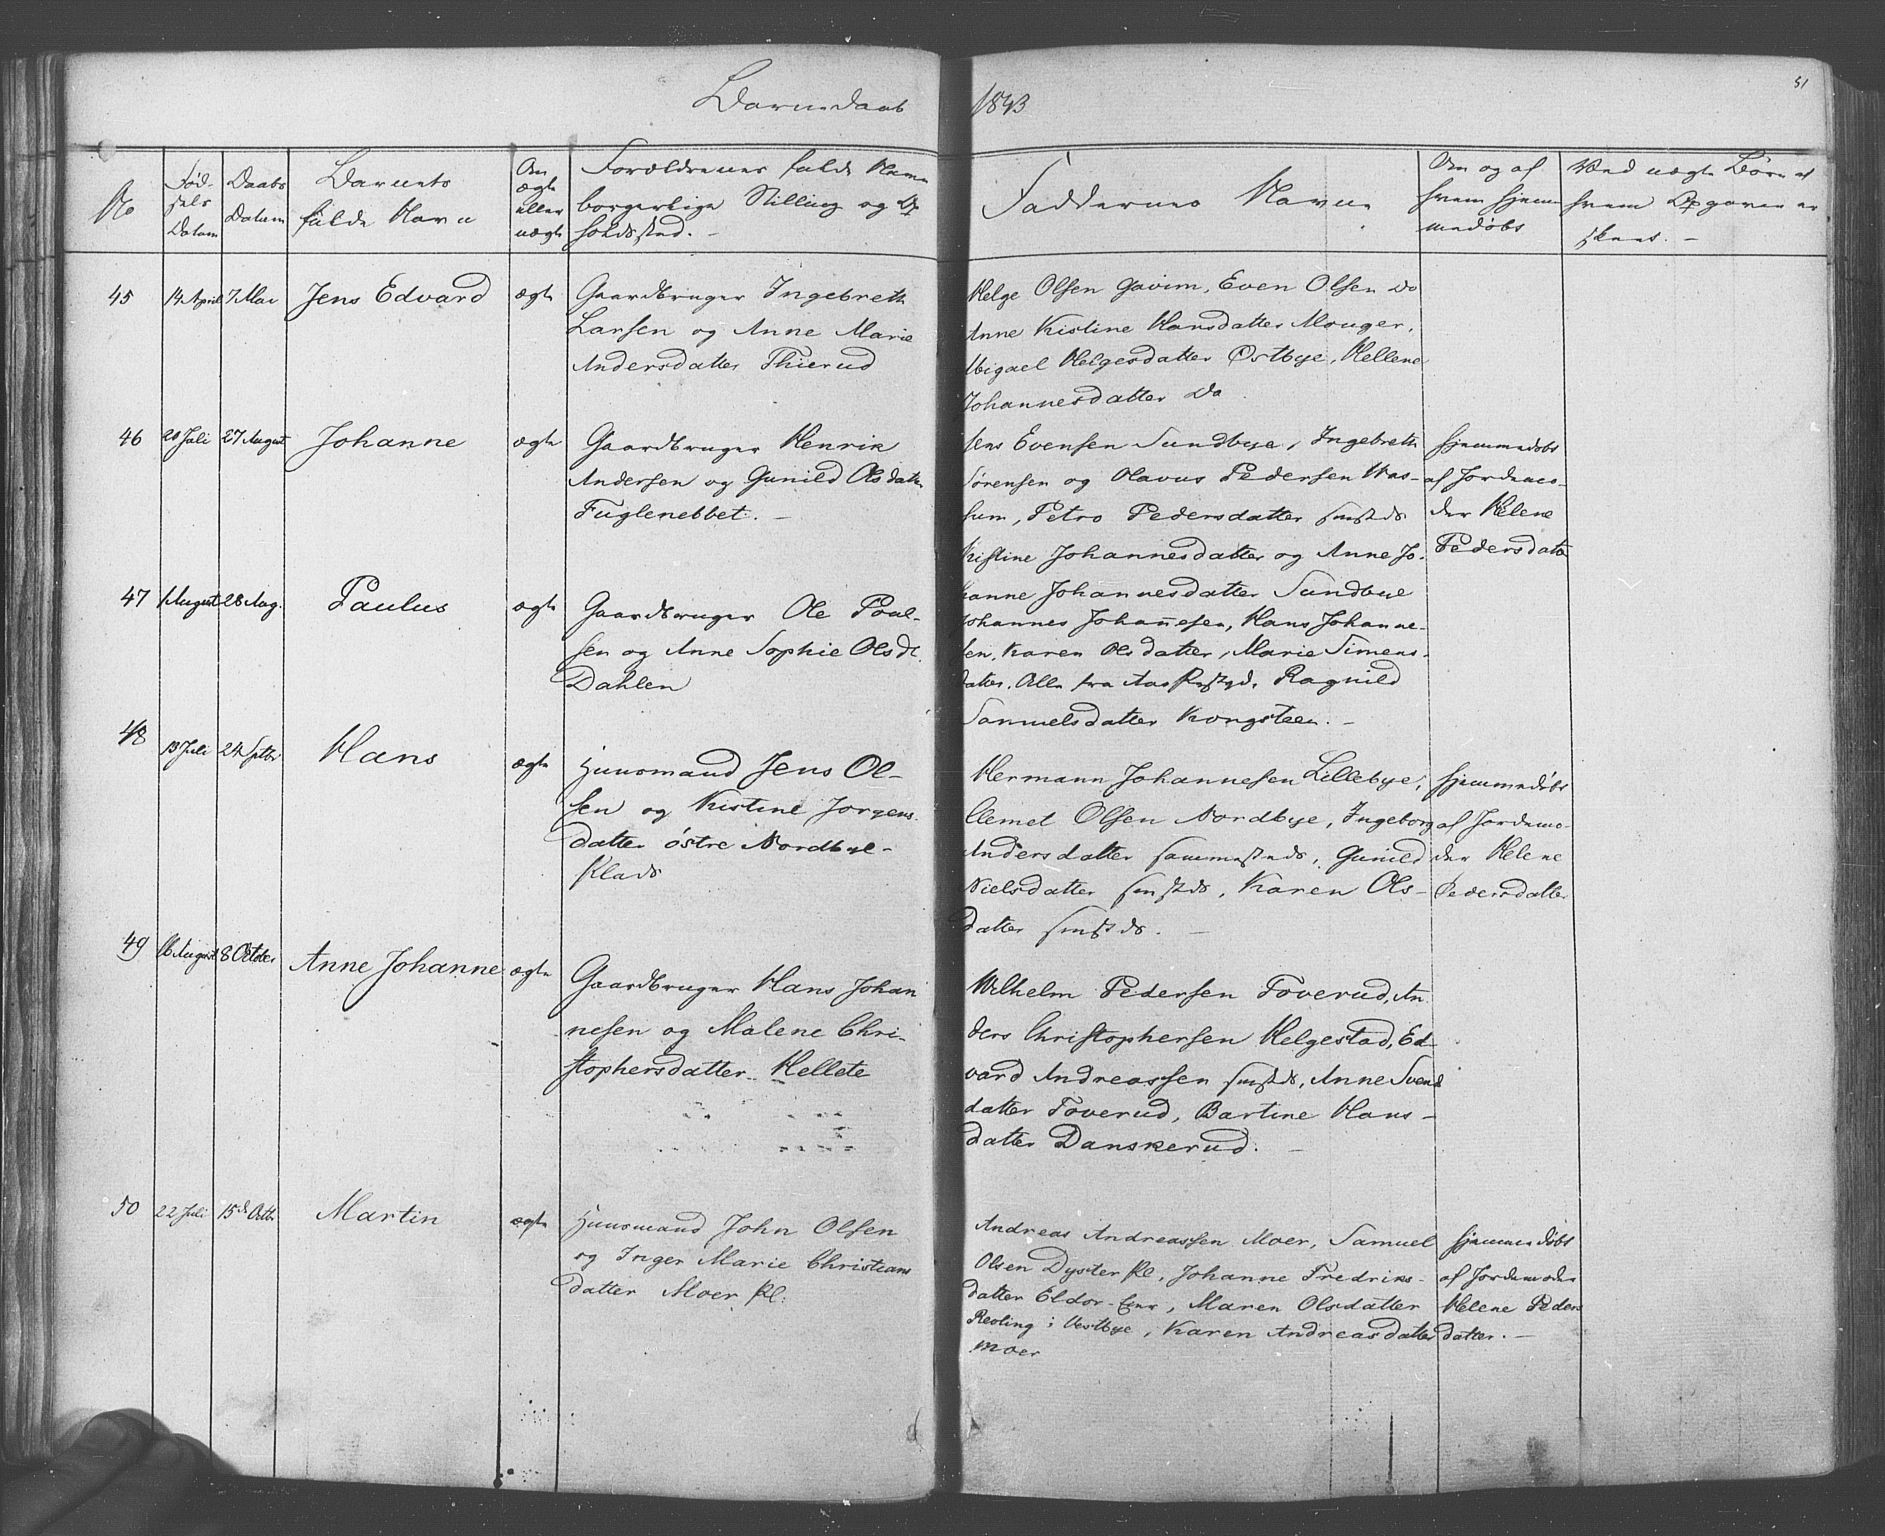 Barnedaab
1843
51
No
Fød-
sels
Datum
Daabs
Datum
Barnets
fulde Navn
Om
ægte
eller
uægte
Forældrenes fulde Navne
borgerlige Stilling og Op
holdssted. -
Faddernes Navne
Om og af
hvem hjem
medøbt
Ved uægte Børn at
hvem Opgaven er
skeet. -
45
14 April
7 Mai
Jens Edvard
ægte
Gaardbruger Ingebreth
Larsen og Anne Marie
Andersdatter Thierud
Helge Olsen Gavim, Even Olsen Do
Anne Kistine Hansdatter Mouger,
Abigael Helgesdatter Østbye, Hellene
Johannesdatter Do
46
20 Juli
27 August
Johanne
ægte
Gaardbruger Henrik
Andersen og Gunild Olsdatter
Fuglenebbet. -
Jens Evensen Sundbye, Ingebreth
Sørensen og Olavus Pedersen Was-
sum, Petro Pedersdatter smstds
Kistine Johannesdatter og Anne Jo-
hanne Johannesdatter Sundbye
hjemmedøbt
af Jordemo-
der Helene
Pedersdatter
47
1 August
28 Aug.
Paulus
ægte
Gaardbruger Ole Poul-
sen og Anne Sophie Olsdt.
Dahlen
Johannes Johannesen, Hans Johanne-
sen, Karen Olsdatter, Marie Simens-
datter, Alle fra Aas Præstgd. Ragnild
Samuelsdatter Kongsteen. -
48
13 Juli
24 Septbr
Hans
ægte
Huusmand Jens Ol-
sen og Kistine Jørgens
datter østre Nordbye-
Plads
Hermann Johannesen Lillebye,
Clemet Olsen Nordbye, Ingeborg
Andersdatter sammesteds, Gunild
Nielsdatter smstds, Karen Ols-
datter smstds. -
hjemmedøbt
af Jordemo-
der Helene
Pedersdatter
49
16 August
8 October
Anne Johanne
ægte
Gaardbruger Hans Johan
nesen og Malene Chri-
stophersdatter Hellete
Wilhelm Pedersen Toverud, An
ders Christophersen Helgestad, Ed-
vard Andreassen smstds, Anne Svends
datter Toverud, Bartine Hans-
datter Danskerud. -
50
22 Juli
15de Octbr
Martin
ægte
Huusmand John Olsen
og Inger Marie Christians
datter Moer Pl.
Andreas Andreassen Moer, Samuel
Olsen Dyster Pl, Johanne Fredriks-
datter Eldor-, Maren Olsdatter
i Vestbye, Karen Andreasdatter
Moer
hjemmedøbt
af Jordemoder
Helene Peders
datter. -